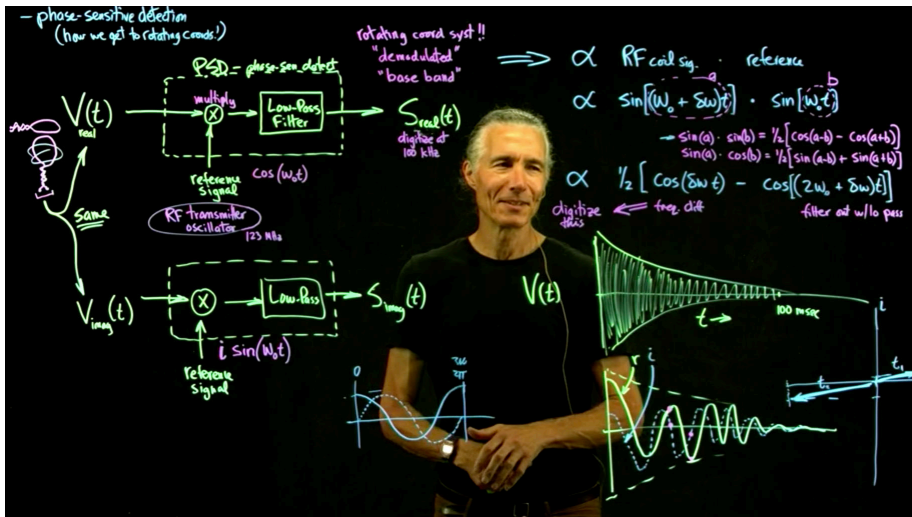 - phase-sensitive detection
(how we get to rotating coords!)
PSD - phase-sen. detect
V(t)
real
multiply
X
Low-Pass
Filter
S real (t)
digitize at
100 kHz
reference
signal
cos(ω₀t)
RF transmitter
oscillator
123 MHz
same
V imag (t)
X
Low-Pass
S imag (t)
i sin(ω₀t)
reference
signal
rotating coord syst!!
"demodulated"
"base band"
⟹ ∝ RF coil sig. · reference
a
b
∝ sin[(ω₀ + δω)t] · sin[ω₀t]
→ sin(a) · sin(b) = 1/2[cos(a-b) - cos(a+b)]
sin(a) · cos(b) = 1/2[sin(a-b) + sin(a+b)]
∝ 1/2 [cos(δωt) - cos[(2ω₀ + δω)t]]
digitize
this
⟸ freq. diff
filter out w/lo pass
V(t)
t →
100 msec
i
r
i
t₁
0